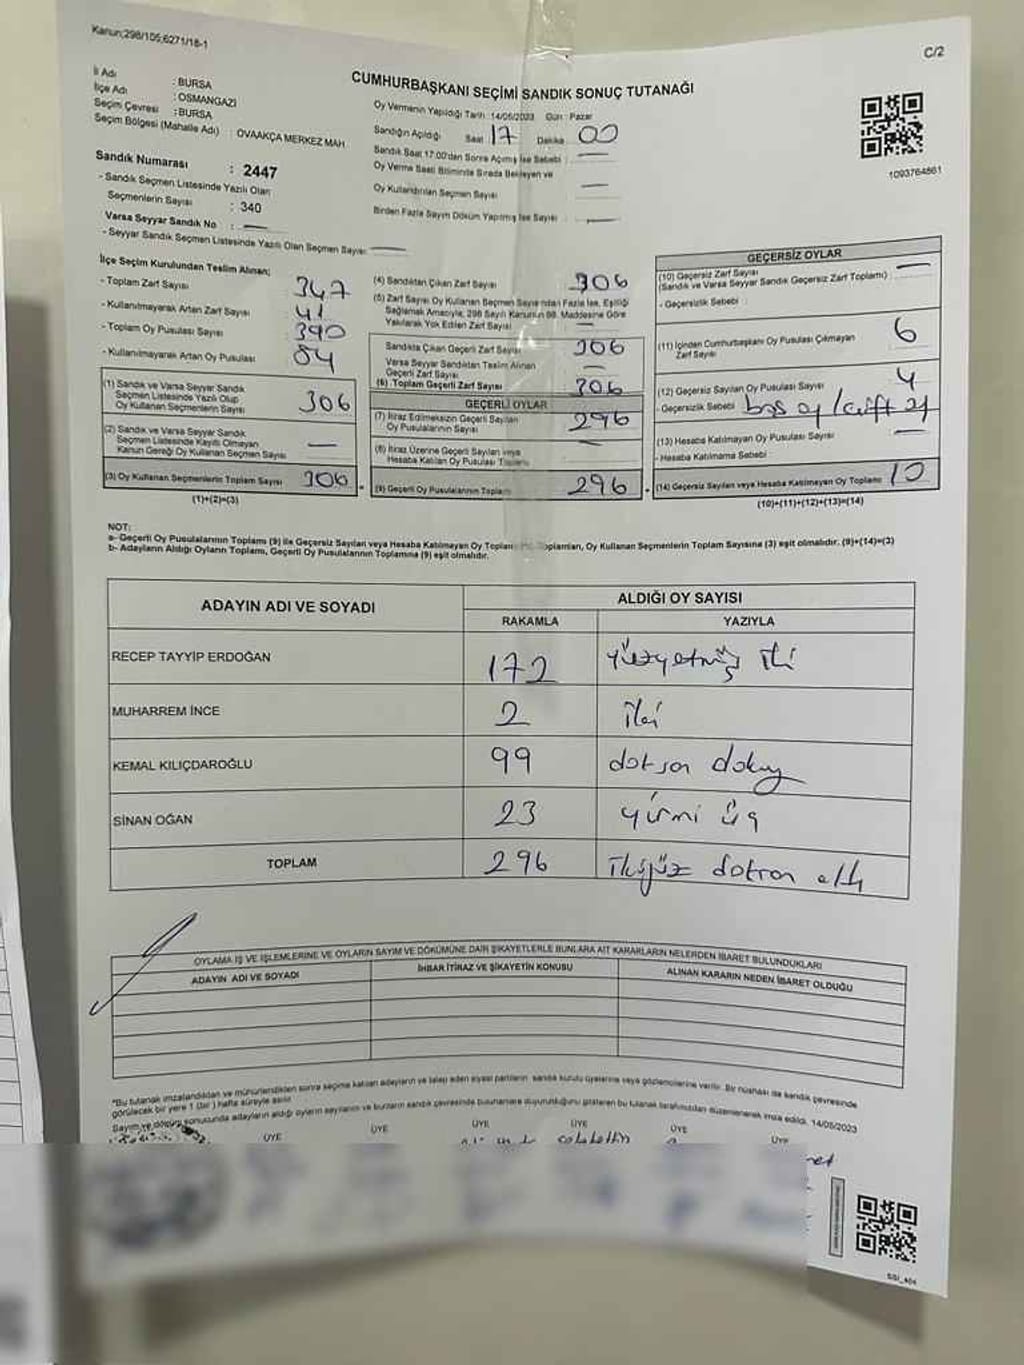 Kanun;298/105;6271/18-1
C/2
CUMHURBAŞKANI SEÇİMİ SANDIK SONUÇ TUTANAĞI
İl Adı : BURSA
İlçe Adı : OSMANGAZİ
Seçim Çevresi : BURSA
Seçim Bölgesi (Mahalle Adı) : OVAAKÇA MERKEZ MAH.
Sandık Numarası : 2447
- Sandık Seçmen Listesinde Yazılı Olan
Seçmenlerin Sayısı : 340
Varsa Seyyar Sandık No : —
- Seyyar Sandık Seçmen Listesinde Yazılı Olan Seçmen Sayısı: —
Oy Vermenin Yapıldığı Tarih :14/05/2023 Gün : Pazar
Sandığın Açıldığı Saat 17 Dakika 00
Sandık Saat 17.00'den Sonra Açılmış İse Sebebi : —
Oy Verme Saati Bitiminde Sırada Bekleyen ve
Oy Kullandırılan Seçmen Sayısı : —
Birden Fazla Sayım Döküm Yapılmış İse Sayısı : —
1093764861
İlçe Seçim Kurulundan Teslim Alınan;
- Toplam Zarf Sayısı 347
- Kullanılmayarak Artan Zarf Sayısı 41
- Toplam Oy Pusulası Sayısı 390
- Kullanılmayarak Artan Oy Pusulası 84
(1) Sandık ve Varsa Seyyar Sandık
Seçmen Listesinde Yazılı Olup
Oy Kullanan Seçmenlerin Sayısı 306
(2) Sandık ve Varsa Seyyar Sandık
Seçmen Listesinde Kayıtlı Olmayan
Kanun Gereği Oy Kullanan Seçmen Sayısı —
(3) Oy Kullanan Seçmenlerin Toplam Sayısı 306
(1)+(2)=(3)
(4) Sandıktan Çıkan Zarf Sayısı 306
(5) Zarf Sayısı Oy Kullanan Seçmen Sayısından Fazla İse, Eşitliği
Sağlamak Amacıyla; 298 Sayılı Kanunun 98. Maddesine Göre
Yakılarak Yok Edilen Zarf Sayısı —
Sandıkta Çıkan Geçerli Zarf Sayısı 306
Varsa Seyyar Sandıktan Teslim Alınan
Geçerli Zarf Sayısı —
(6) Toplam Geçerli Zarf Sayısı 306
GEÇERLİ OYLAR
(7) İtiraz Edilmeksizin Geçerli Sayılan
Oy Pusulalarının Sayısı 296
(8) İtiraz Üzerine Geçerli Sayılan veya
Hesaba Katılan Oy Pusulası Toplamı —
(9) Geçerli Oy Pusulalarının Toplamı 296
GEÇERSİZ OYLAR
(10) Geçersiz Zarf Sayısı —
(Sandık ve Varsa Seyyar Sandık Geçersiz Zarf Toplamı)
- Geçersizlik Sebebi :
(11) İçinden Cumhurbaşkanı Oy Pusulası Çıkmayan
Zarf Sayısı 6
(12) Geçersiz Sayılan Oy Pusulası Sayısı 4
- Geçersizlik Sebebi boş oy / çift oy
(13) Hesaba Katılmayan Oy Pusulası Sayısı —
- Hesaba Katılmama Sebebi :
(14) Geçersiz Sayılan veya Hesaba Katılmayan Oy Toplamı 10
(10)+(11)+(12)+(13)=(14)
NOT:
a- Geçerli Oy Pusulalarının Toplamı (9) ile Geçersiz Sayılan veya Hesaba Katılmayan Oy Toplamı Toplamları, Oy Kullanan Seçmenlerin Toplam Sayısına (3) eşit olmalıdır. (9)+(14)=(3)
b- Adayların Aldığı Oyların Toplamı, Geçerli Oy Pusulalarının Toplamına (9) eşit olmalıdır.
ADAYIN ADI VE SOYADI ALDIĞI OY SAYISI
RAKAMLA YAZIYLA
RECEP TAYYİP ERDOĞAN 172 yüzyetmiş iki
MUHARREM İNCE 2 iki
KEMAL KILIÇDAROĞLU 99 doksan dokuz
SİNAN OĞAN 23 yirmi üç
TOPLAM 296 ikiyüz doksan altı
OYLAMA İŞ VE İŞLEMLERİNE VE OYLARIN SAYIM VE DÖKÜMÜNE DAİR ŞİKAYETLERLE BUNLARA AİT KARARLARIN NELERDEN İBARET BULUNDUKLARI
ADAYIN ADI VE SOYADI İHBAR İTİRAZ VE ŞİKAYETİN KONUSU ALINAN KARARIN NEDEN İBARET OLDUĞU
"Bu tutanak imzalandıktan ve mühürlendikten sonra seçime katılan adayların ve talep eden siyasi partilerin sandık kurulu üyelerine veya gözlemcilerine verilir. Bir nüshası da sandık çevresinde
görülecek bir yere 1 (bir) hafta süreyle asılır.
Sayım ve döküm sonucunda adayların aldığı oyların sayılarını ve bunların sandık çevresinde bulunanlara duyurulduğunu gösteren bu tutanak tarafımızdan düzenlenerek imza edildi. 14/05/2023
ÜYE ÜYE ÜYE ÜYE ÜYE ÜYE
SSİ_404